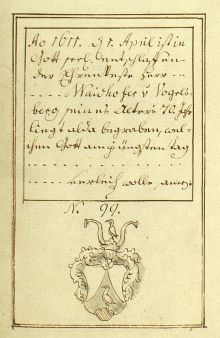 Ao 1611. d 1. April ist in
Gott seel. entschlaffen
der Ehrenveste Herr . . .
. . . . Waidhofer v Vogels-
berg seines Alters 70 Jahr
liegt alda begraben, wel-
chen Gott am jüngsten tag
. . . . . . . . . . . . . . . .
. . . . . verleich wolle, amen.
N. 99.